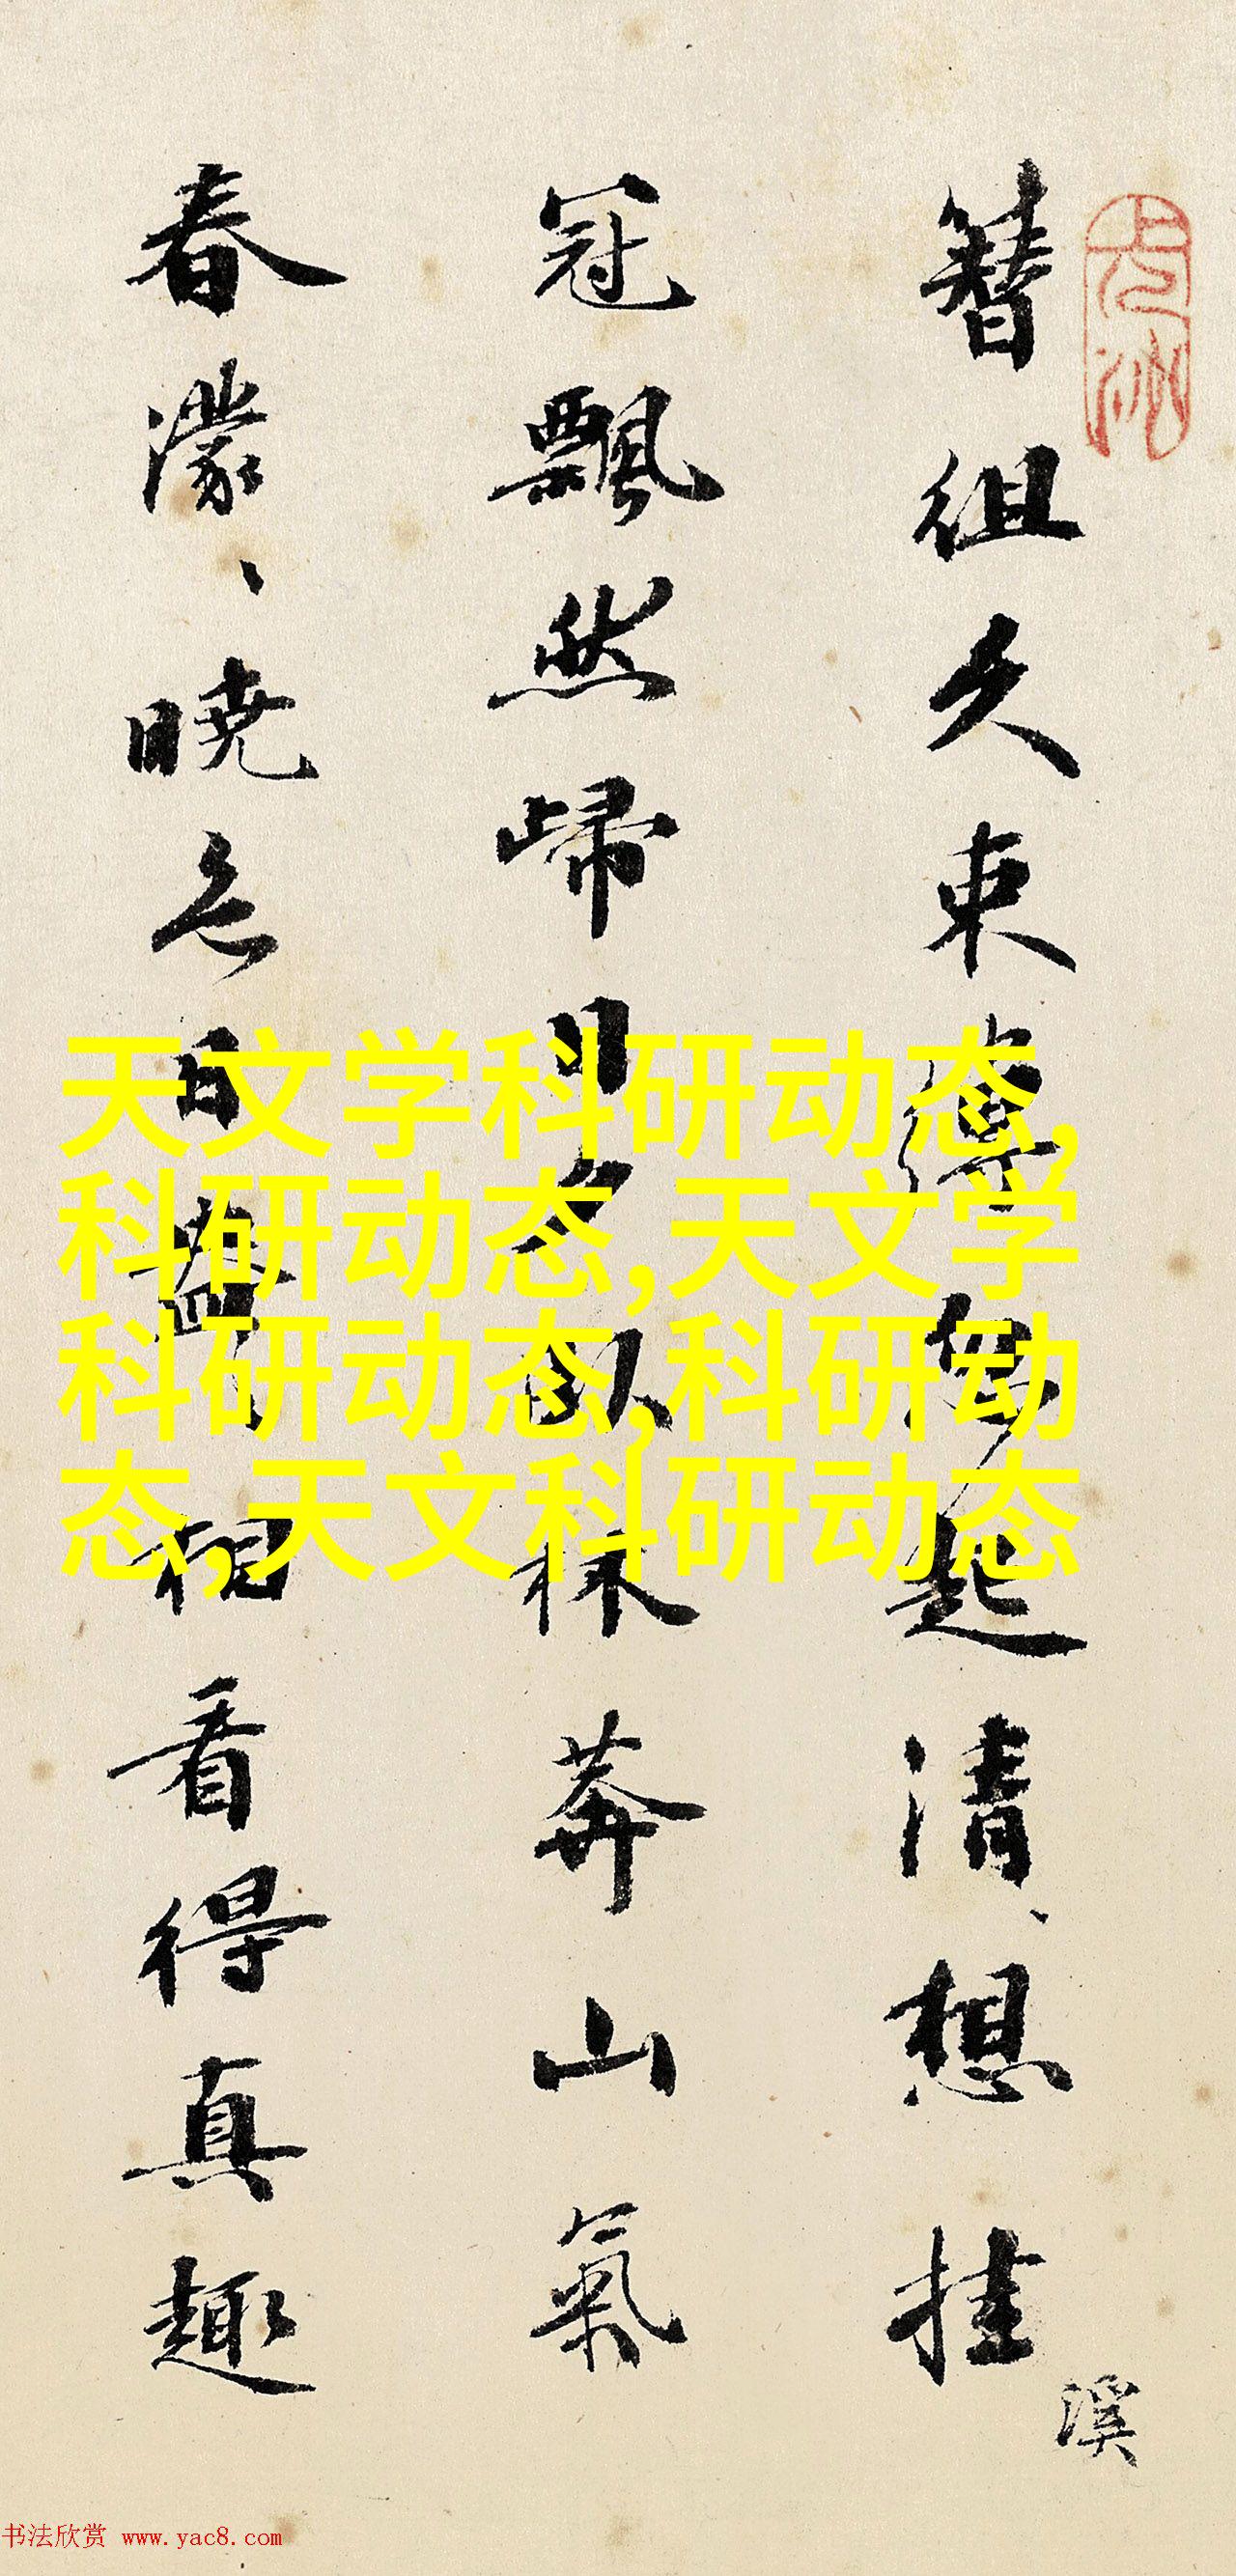 簪组久束缚忽起清想挂
冠飘然归日夕卧林莽山气
春蒙、晓色日盎相看得真趣
溪
天文学科研动态,
科研动态,天文学
科研动态,科研动
态,天文科研动态
书法欣赏 www.yac8.com